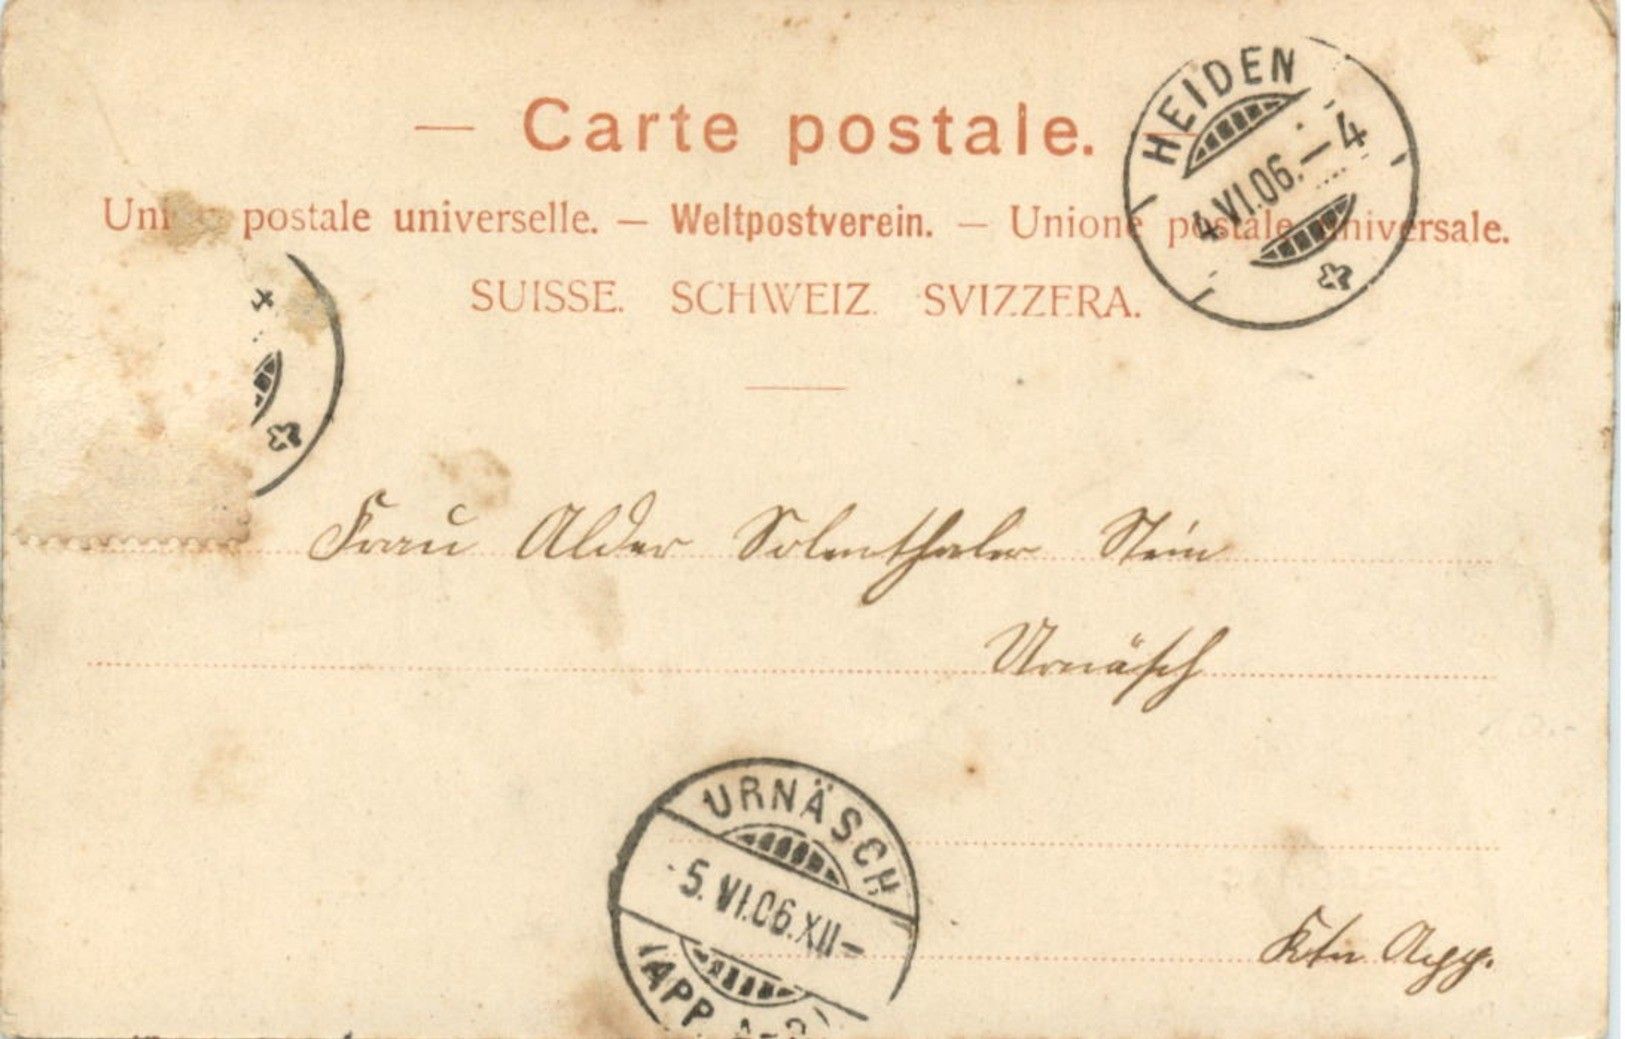 — Carte postale.
postale universelle. — Weltpostverein. — Unione postale universale.
SUISSE. SCHWEIZ. SVIZZERA.
HEIDEN
4.VI.06.—4
Frau Alder Solenthaler Stein
Urnäsch
URNÄSCH
5.VI.06.XII—
(APP.
Ktn App.